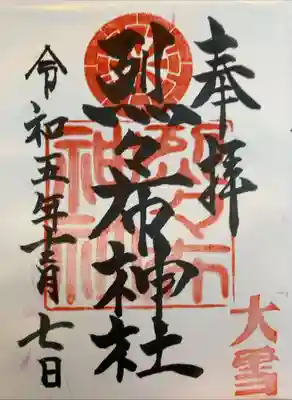 奉拝
烈々布神社
令和五年十二月七日
大雪